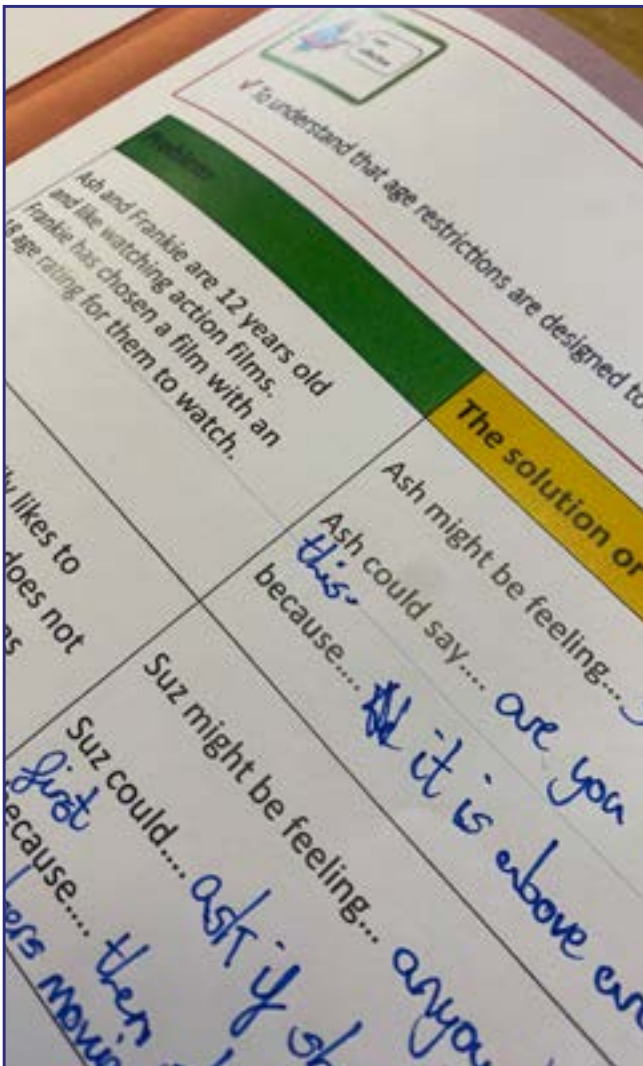 ✓ To understand that age restrictions are designed to
Problem
Ash and Frankie are 12 years old
and like watching action films.
Frankie has chosen a film with an
18 age rating for them to watch.
The solution or
Ash might be feeling...
Ash could say.... are you
this.
because.... it is above
likes to
does not
Suz might be feeling...
Suz could.... ask if
first
because.... then